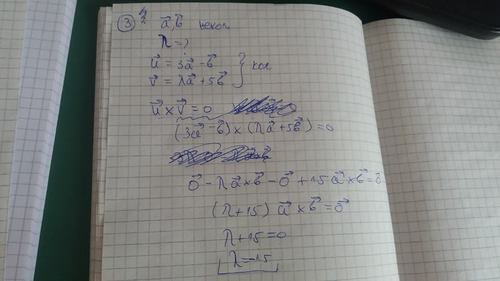 ③ 4/2 a⃗, b⃗ некол
λ = ?
u⃗ = 3a⃗ - b⃗
v⃗ = λa⃗ + 5b⃗ } кол
u⃗ × v⃗ = 0
(3a⃗ - b⃗) × (λa⃗ + 5b⃗) = 0
o⃗ - λ a⃗ × b⃗ - o⃗ + 15 a⃗ × b⃗ = o⃗
(λ + 15) a⃗ × b⃗ = o⃗
λ + 15 = 0
λ = -15